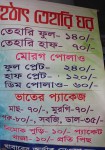 হঠাৎ তেহারি ঘর
তেহারি ফুল- ১৪০/-
তেহারি হাফ- ৭০/-
মোরগ পোলাও
ফুল প্লেট- ২৪০/-
হাফ প্লেট- ১২০/-
ডিম পোলাও- ৬০/-
ভাতের প্যাকেজ
মাছ- ৭০/- মুরগি- ৭০/-
গরু- ৮০/-, সবজি, ডাল- ৩৫/-